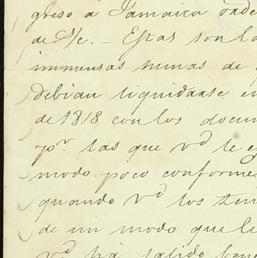 greso á Jamaica orde
de S/c. – Estas son la
immensas sumas de
debian liquidarse e
de 1818 con los docum
pr. las que vd le e
modo poco conforme
quando vd los tien
de un modo que le
vd ha salido ben